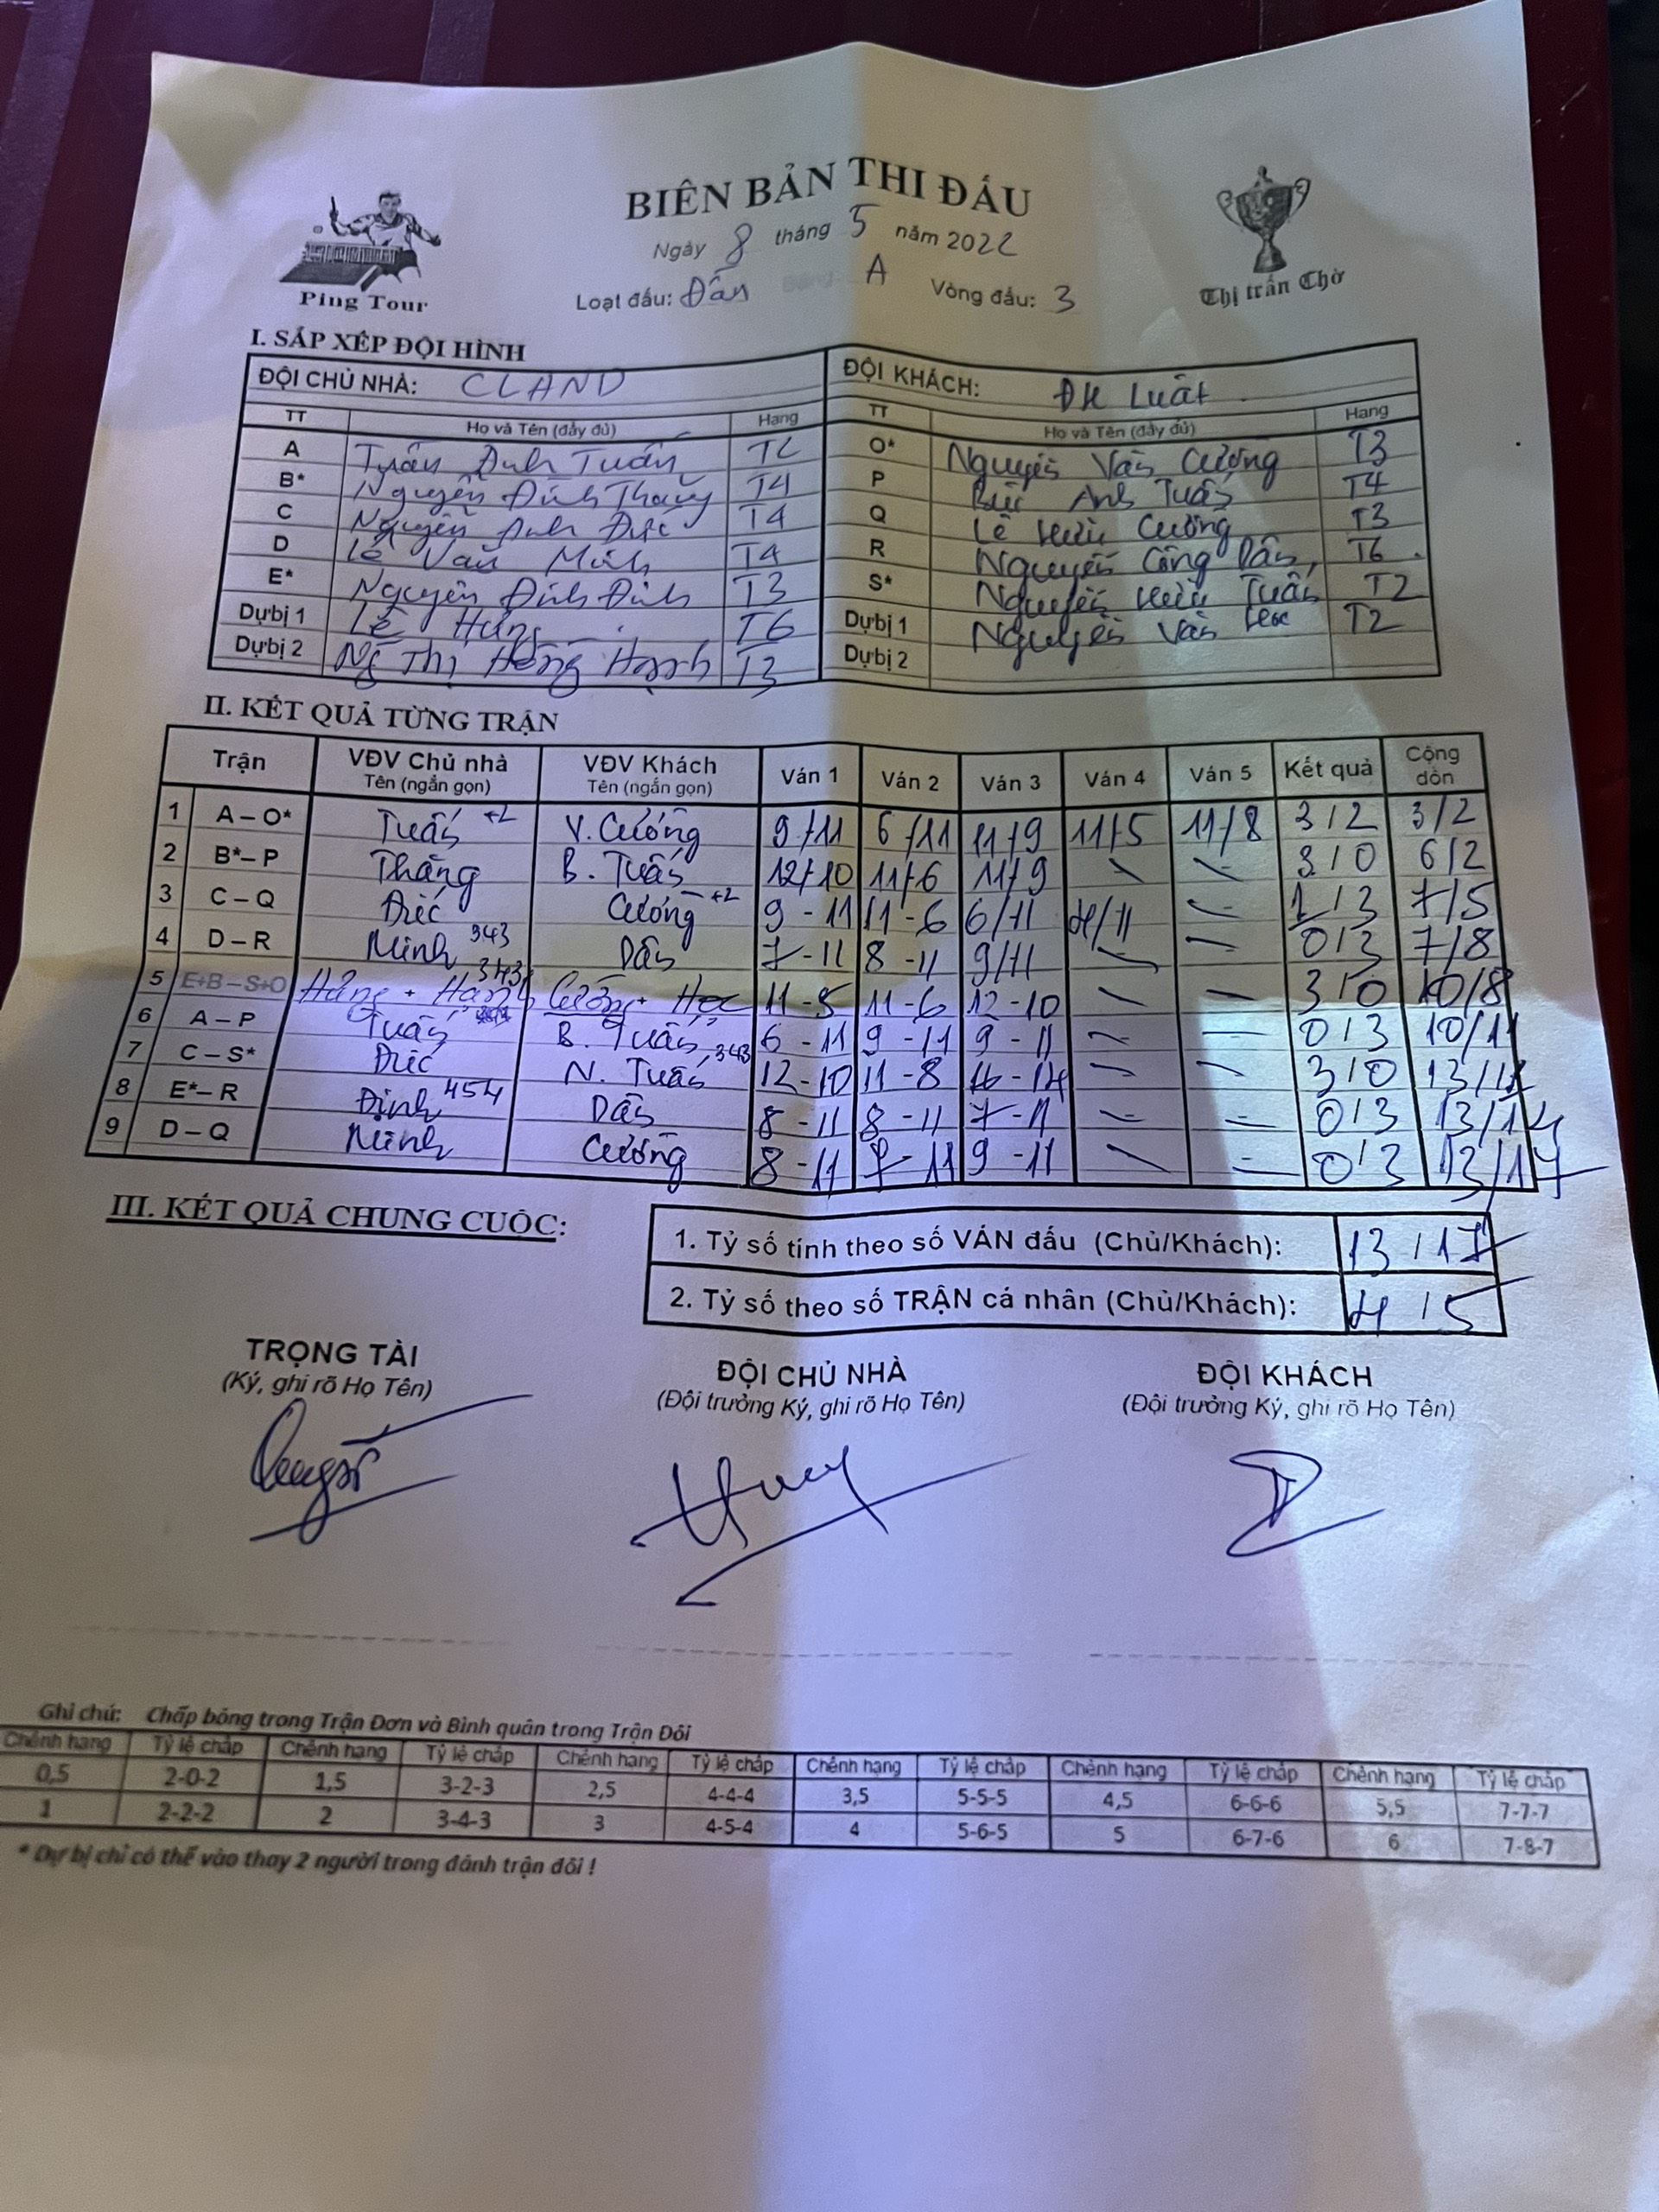 BIÊN BẢN THI ĐẤU
Ngày 8 tháng 5 năm 2022
Loạt đấu: Đấu A Vòng đấu: 3
Ping Tour
Thị trấn Chờ
I. SẮP XẾP ĐỘI HÌNH
ĐỘI CHỦ NHÀ: CLAND ĐỘI KHÁCH: ĐH Luật
TT Họ và Tên (đầy đủ) Hạng TT Họ và Tên (đầy đủ) Hạng
A Trần Anh Tuấn T2 O* Nguyễn Văn Cường T3
B* Nguyễn Đình Thắng T4 P Bùi Anh Tuấn T4
C Nguyễn Anh Đức T4 Q Lê Hữu Cường T3
D Lê Văn Minh T4 R Nguyễn Công Dân T6
E* Nguyễn Đình Định T3 S* Nguyễn Hữu Tuấn T2
Dự bị 1 Lê Hùng T6 Dự bị 1 Nguyễn Văn Học T2
Dự bị 2 Ng Thị Hồng Hạnh T3 Dự bị 2
II. KẾT QUẢ TỪNG TRẬN
Trận VĐV Chủ nhà VĐV Khách Ván 1 Ván 2 Ván 3 Ván 4 Ván 5 Kết quả Cộng dồn
Tên (ngắn gọn) Tên (ngắn gọn)
1 A – O* Tuấn +2 V. Cường 9/11 6/11 11/9 11/5 11/8 3/2 3/2
2 B* – P Thắng B. Tuấn 12/10 11/6 11/9 3/0 6/2
3 C – Q Đức Cường +2 9-11 11-6 6/11 4/11 1/3 7/5
4 D – R Minh 343 Dân 7-11 8-11 9/11 0/3 7/8
5 E+B – S+O Hùng + Hạnh 343 Cường + Học 11-5 11-6 12-10 3/0 10/8
6 A – P Tuấn B. Tuấn 6-11 9-11 9-11 0/3 10/11
7 C – S* Đức N. Tuấn 343 12-10 11-8 16-14 3/0 13/11
8 E* – R Định 454 Dân 8-11 8-11 7-11 0/3 13/14
9 D – Q Minh Cường 8-11 7-11 9-11 0/3 13/17
III. KẾT QUẢ CHUNG CUỘC:
1. Tỷ số tính theo số VÁN đấu (Chủ/Khách): 13/17
2. Tỷ số theo số TRẬN cá nhân (Chủ/Khách): 4/5
TRỌNG TÀI ĐỘI CHỦ NHÀ ĐỘI KHÁCH
(Ký, ghi rõ Họ Tên) (Đội trưởng Ký, ghi rõ Họ Tên) (Đội trưởng Ký, ghi rõ Họ Tên)
Ghi chú: Chấp bóng trong Trận Đơn và Bình quân trong Trận Đôi
Chênh hạng Tỷ lệ chấp Chênh hạng Tỷ lệ chấp Chênh hạng Tỷ lệ chấp Chênh hạng Tỷ lệ chấp Chênh hạng Tỷ lệ chấp Chênh hạng Tỷ lệ chấp
0,5 2-0-2 1,5 3-2-3 2,5 4-4-4 3,5 5-5-5 4,5 6-6-6 5,5 7-7-7
1 2-2-2 2 3-4-3 3 4-5-4 4 5-6-5 5 6-7-6 6 7-8-7
* Dự bị chỉ có thể vào thay 2 người trong đánh trận đôi !